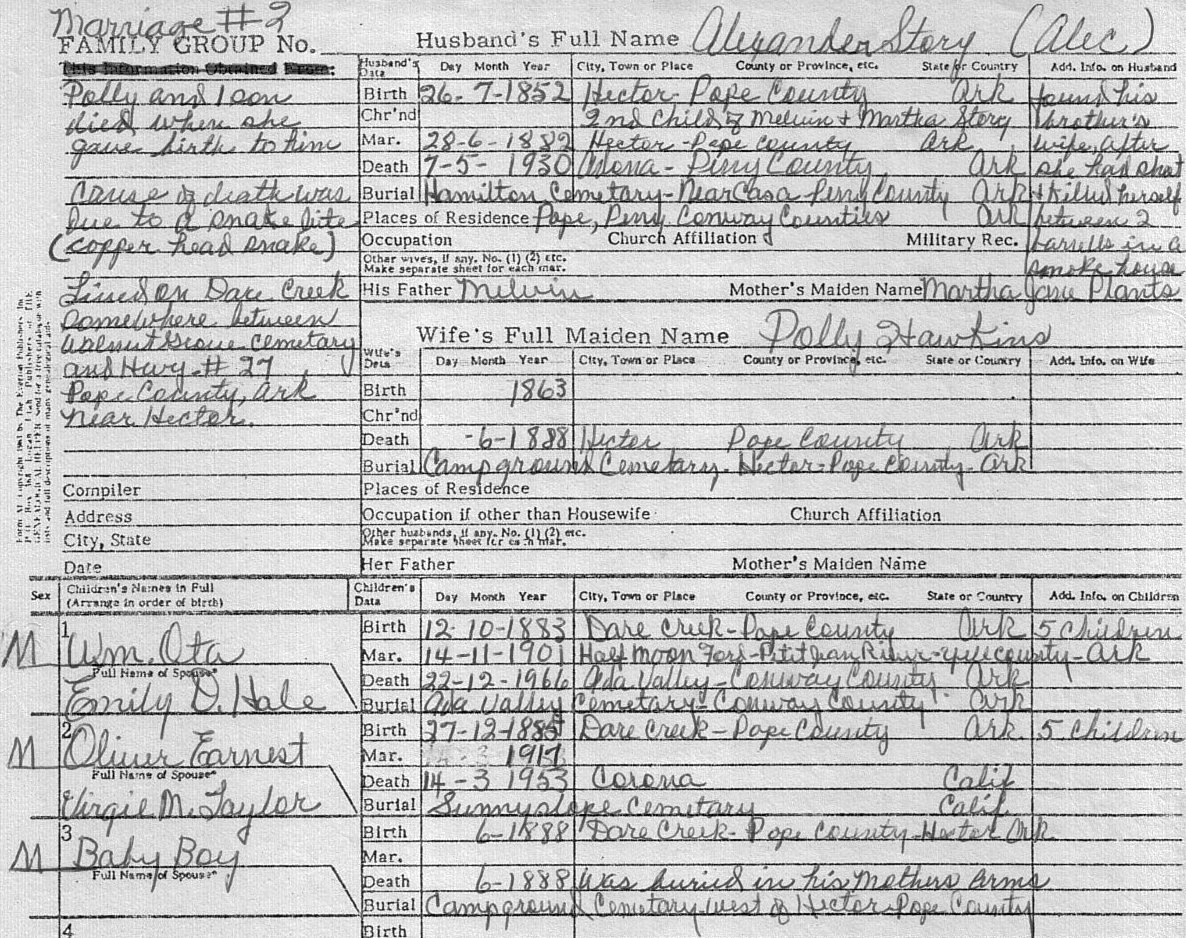 Marriage #2
FAMILY GROUP No. Husband's Full Name Alexander Story (Alec)
This Information Obtained From:
Husband's Data Day Month Year City, Town or Place County or Province, etc. State or Country Add. Info. on Husband
Polly and 1 son
died when she
gave birth to him
Cause of death was
due to a snake bite
(copper head snake)
Lived on Dare Creek
Somewhere between
Walnut Grove Cemetary
and Hwy. # 27
Pope County, Ark
near Hector.
Birth 26-7-1852 Hector-Pope County Ark
Chr'nd 2nd Child of Melvin + Martha Story
Mar. 28-6-1882 Hector-Pope County Ark
Death 7-5-1930 Adona-Perry County Ark
Burial Hamilton Cemetary-Near Casa-Perry County Ark
Places of Residence Pope, Perry, Conway Counties Ark
found his
brother's
wife, after
she had shot
+ killed herself
between 2
barrells in a
smoke house
Occupation Church Affiliation Military Rec.
Other wives, if any. No. (1) (2) etc.
Make separate sheet for each mar.
His Father Melvin Mother's Maiden Name Martha Jane Plants
Wife's Full Maiden Name Polly Hawkins
Wife's Data Day Month Year City, Town or Place County or Province, etc. State or Country Add. Info. on Wife
Birth 1863
Chr'nd
Death -6-1888 Hector Pope County Ark
Burial Campground Cemetary-Hector-Pope County-Ark
Compiler
Address
City, State
Date
Places of Residence
Occupation if other than Housewife Church Affiliation
Other husbands, if any. No. (1) (2) etc.
Make separate sheet for each mar.
Her Father Mother's Maiden Name
Sex Children's Names in Full
(Arrange in order of birth)
Children's Data Day Month Year City, Town or Place County or Province, etc. State or Country Add. Info. on Children
M 1 Wm. Ota
Full Name of Spouse*
Emily D. Hale
Birth 12-10-1883 Dare Creek-Pope County Ark 5 Children
Mar. 14-11-1901 Half Moon Ford-Petit Jean River-Yell County-Ark
Death 22-12-1966 Ada Valley-Conway County Ark
Burial Ada Valley Cemetary-Conway County Ark
M 2 Oliver Earnest
Full Name of Spouse*
Virgie M. Taylor
Birth 27-12-1885 Dare Creek-Pope County Ark. 5 Children
Mar. 1917
Death 14-3 1953 Corona Calif
Burial Sunnyslope Cemetary Calif
M 3 Baby Boy
Full Name of Spouse*
Birth 6-1888 Dare Creek-Pope County-Hector Ark
Mar.
Death 6-1888 Was buried in his Mothers Arms
Burial Campground Cemetary west of Hector-Pope County
4 Birth